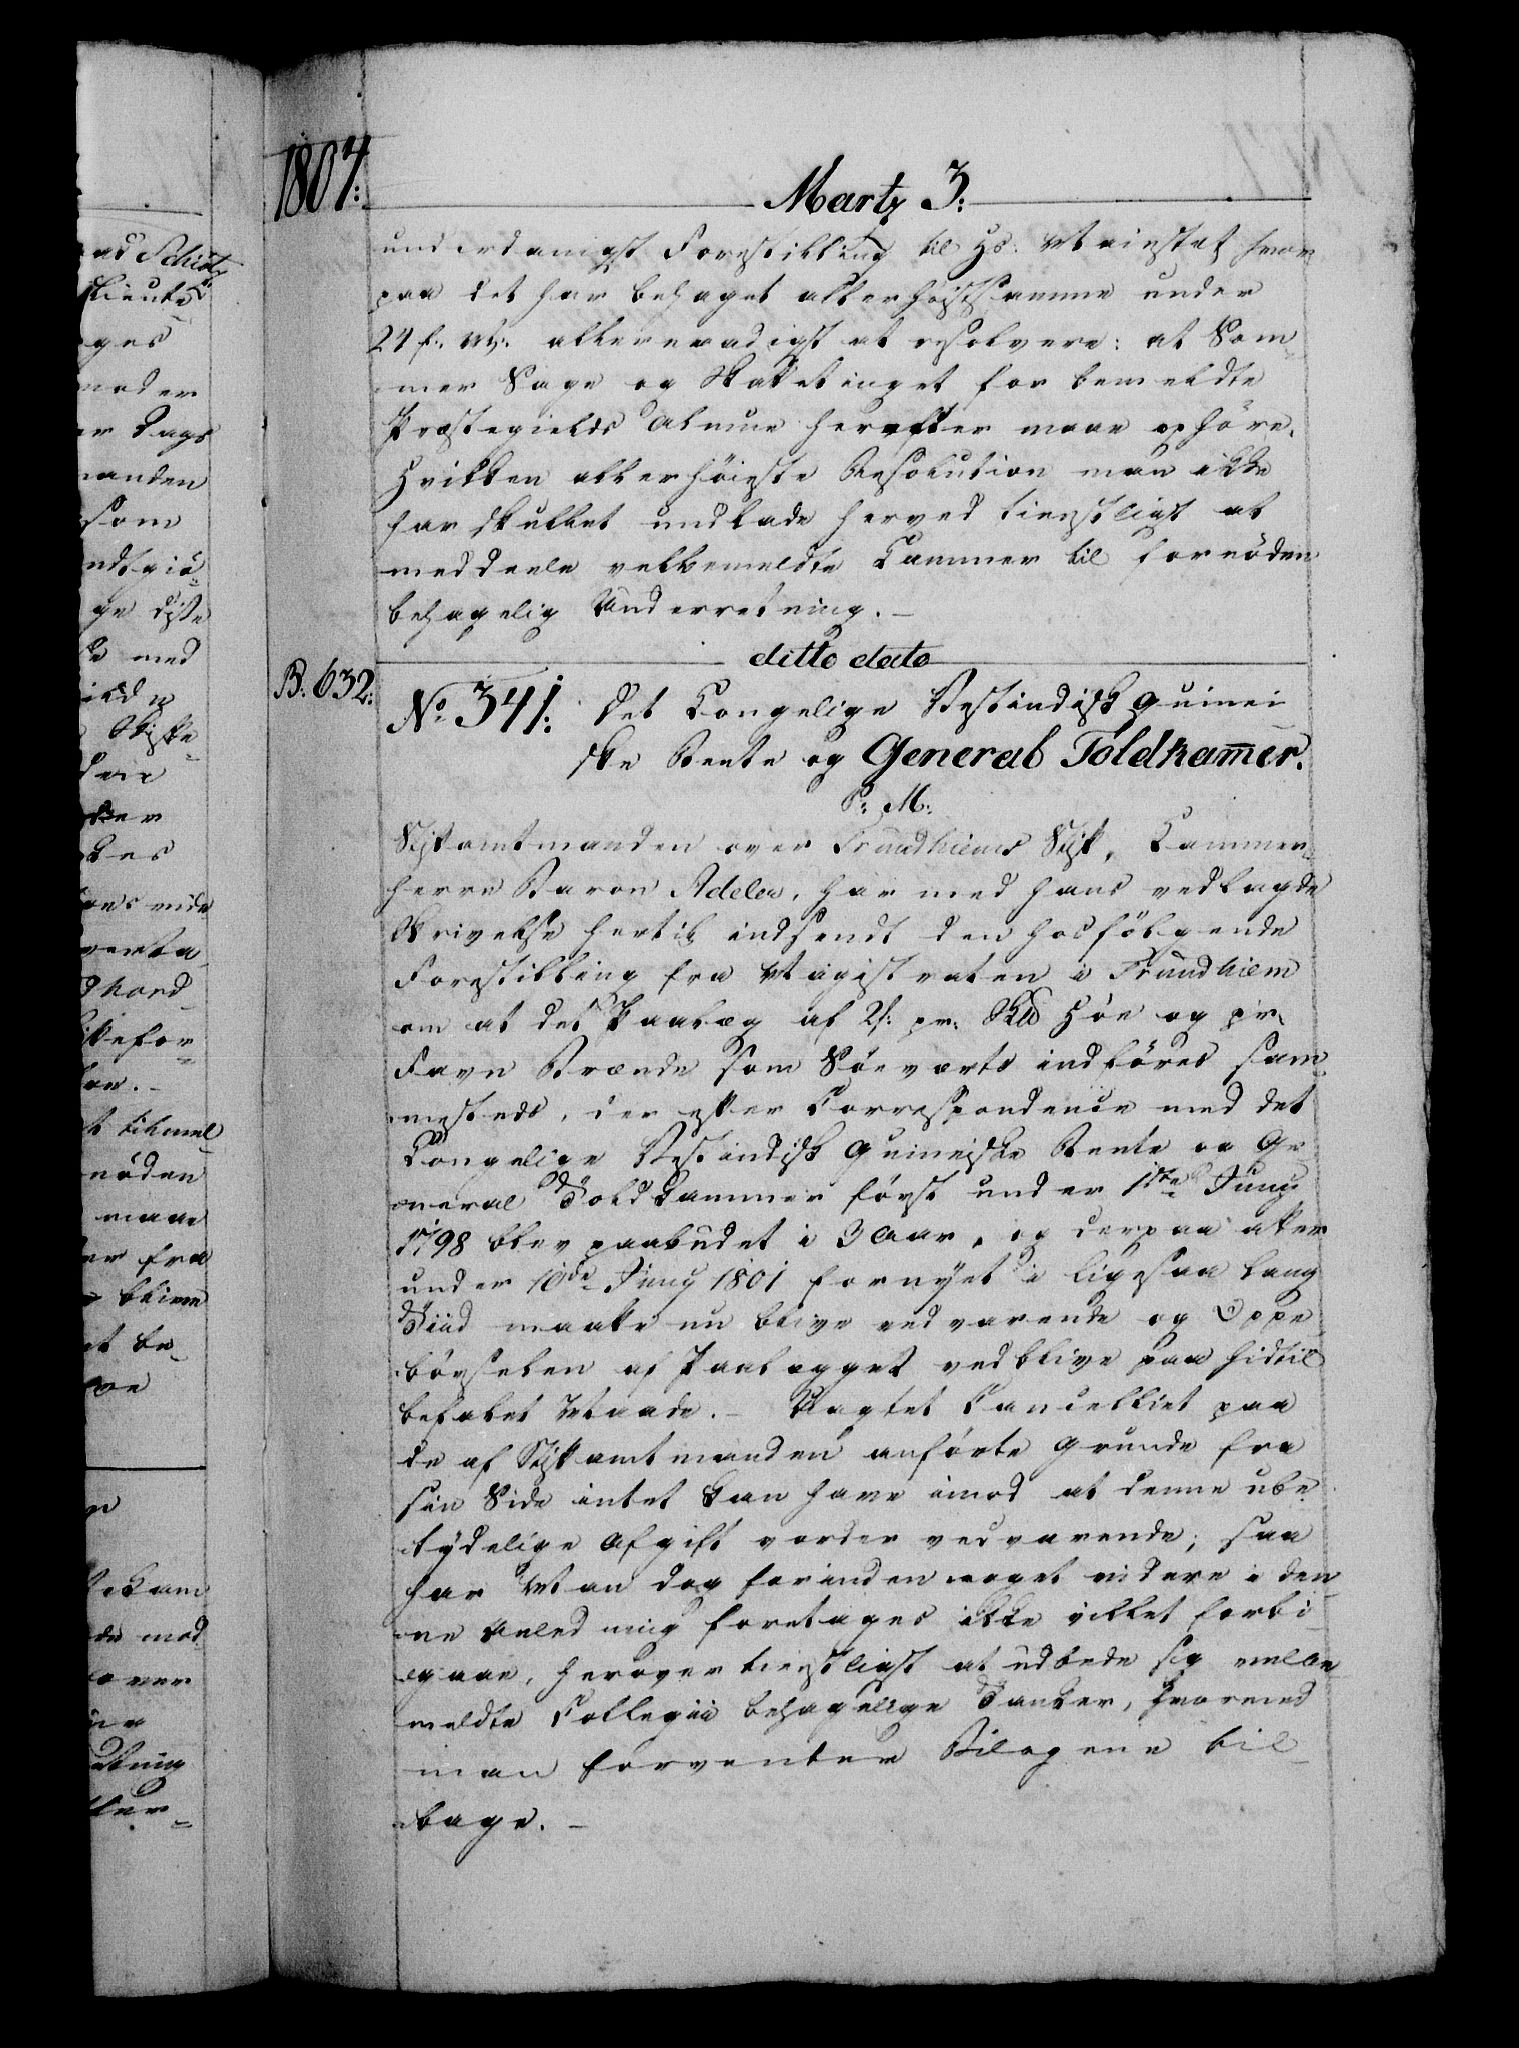 1804:
Martz 3:
underdanigst Forestilling til Hs: Maiestet hvor
paa det har behaget allerhöistsamme under
24 f: M: allernaadigst at resolvere: at Som¬
mer Sage og Skatte tinget for bemeldte
Præstegields Almue herefter maae ophöre.
Hvilken allerhöieste Resolution man ikke
har skullet undlade herved tienstligst at
meddeele velbemeldte Kammer til fornöden
behagelig Underretning.–
ditto dato
B: 632:
No 341: Det Kongelige Vestindisk guinei
ske Rente og General Toldkamer.
P: M:
Stiftamtmanden over Trundhiems Stift, Kammer¬
herre Baron Adeler, har med hans vedlagde
Skrivelse hertil indsendt den hosfölgende
Forestilling fra Magistraten i Trundhiem
om at det Paalæg af 2 s: pr: Höe og pr:
Favn Brænde som Söeværts indföres sam¬
mesteds, der efter Correspondence med det
Kongelige Vestindisk Guineiske Rente og Ge
neral Toldkammer först under 1ste Juny
1798 blev paabudet i 3 Aar, og derpaa atter
under 10de Juny 1801 fornyet i ligesaa lang
Tiid maatte nu blive vedvarende og Oppe
börselen af Paalægget vedblive paa hidtil
befalet Maade. – Uagtet Cancelliet paa
de af Stiftamtmanden anförte Grunde fra
sin Side intet kan have imod at denne ube
tydelige Afgift vorder vedvarende; saa
har Man dog forinden noget videre i den¬
ne Anledning foretages ikke villet forbi¬
gaae, herover tienstligst at udbede sig velbe
meldte Collegii behagelige Tanker, hvormed
man forventer Bilagene til¬
bage. –
ad Schiötz
Lieute
ges
moder
er Dags
manden
som
ge disse
med
Skifte¬
der
vide
nord
for.
tilmel
nöden
maae
er fra
blive
et be¬
mod